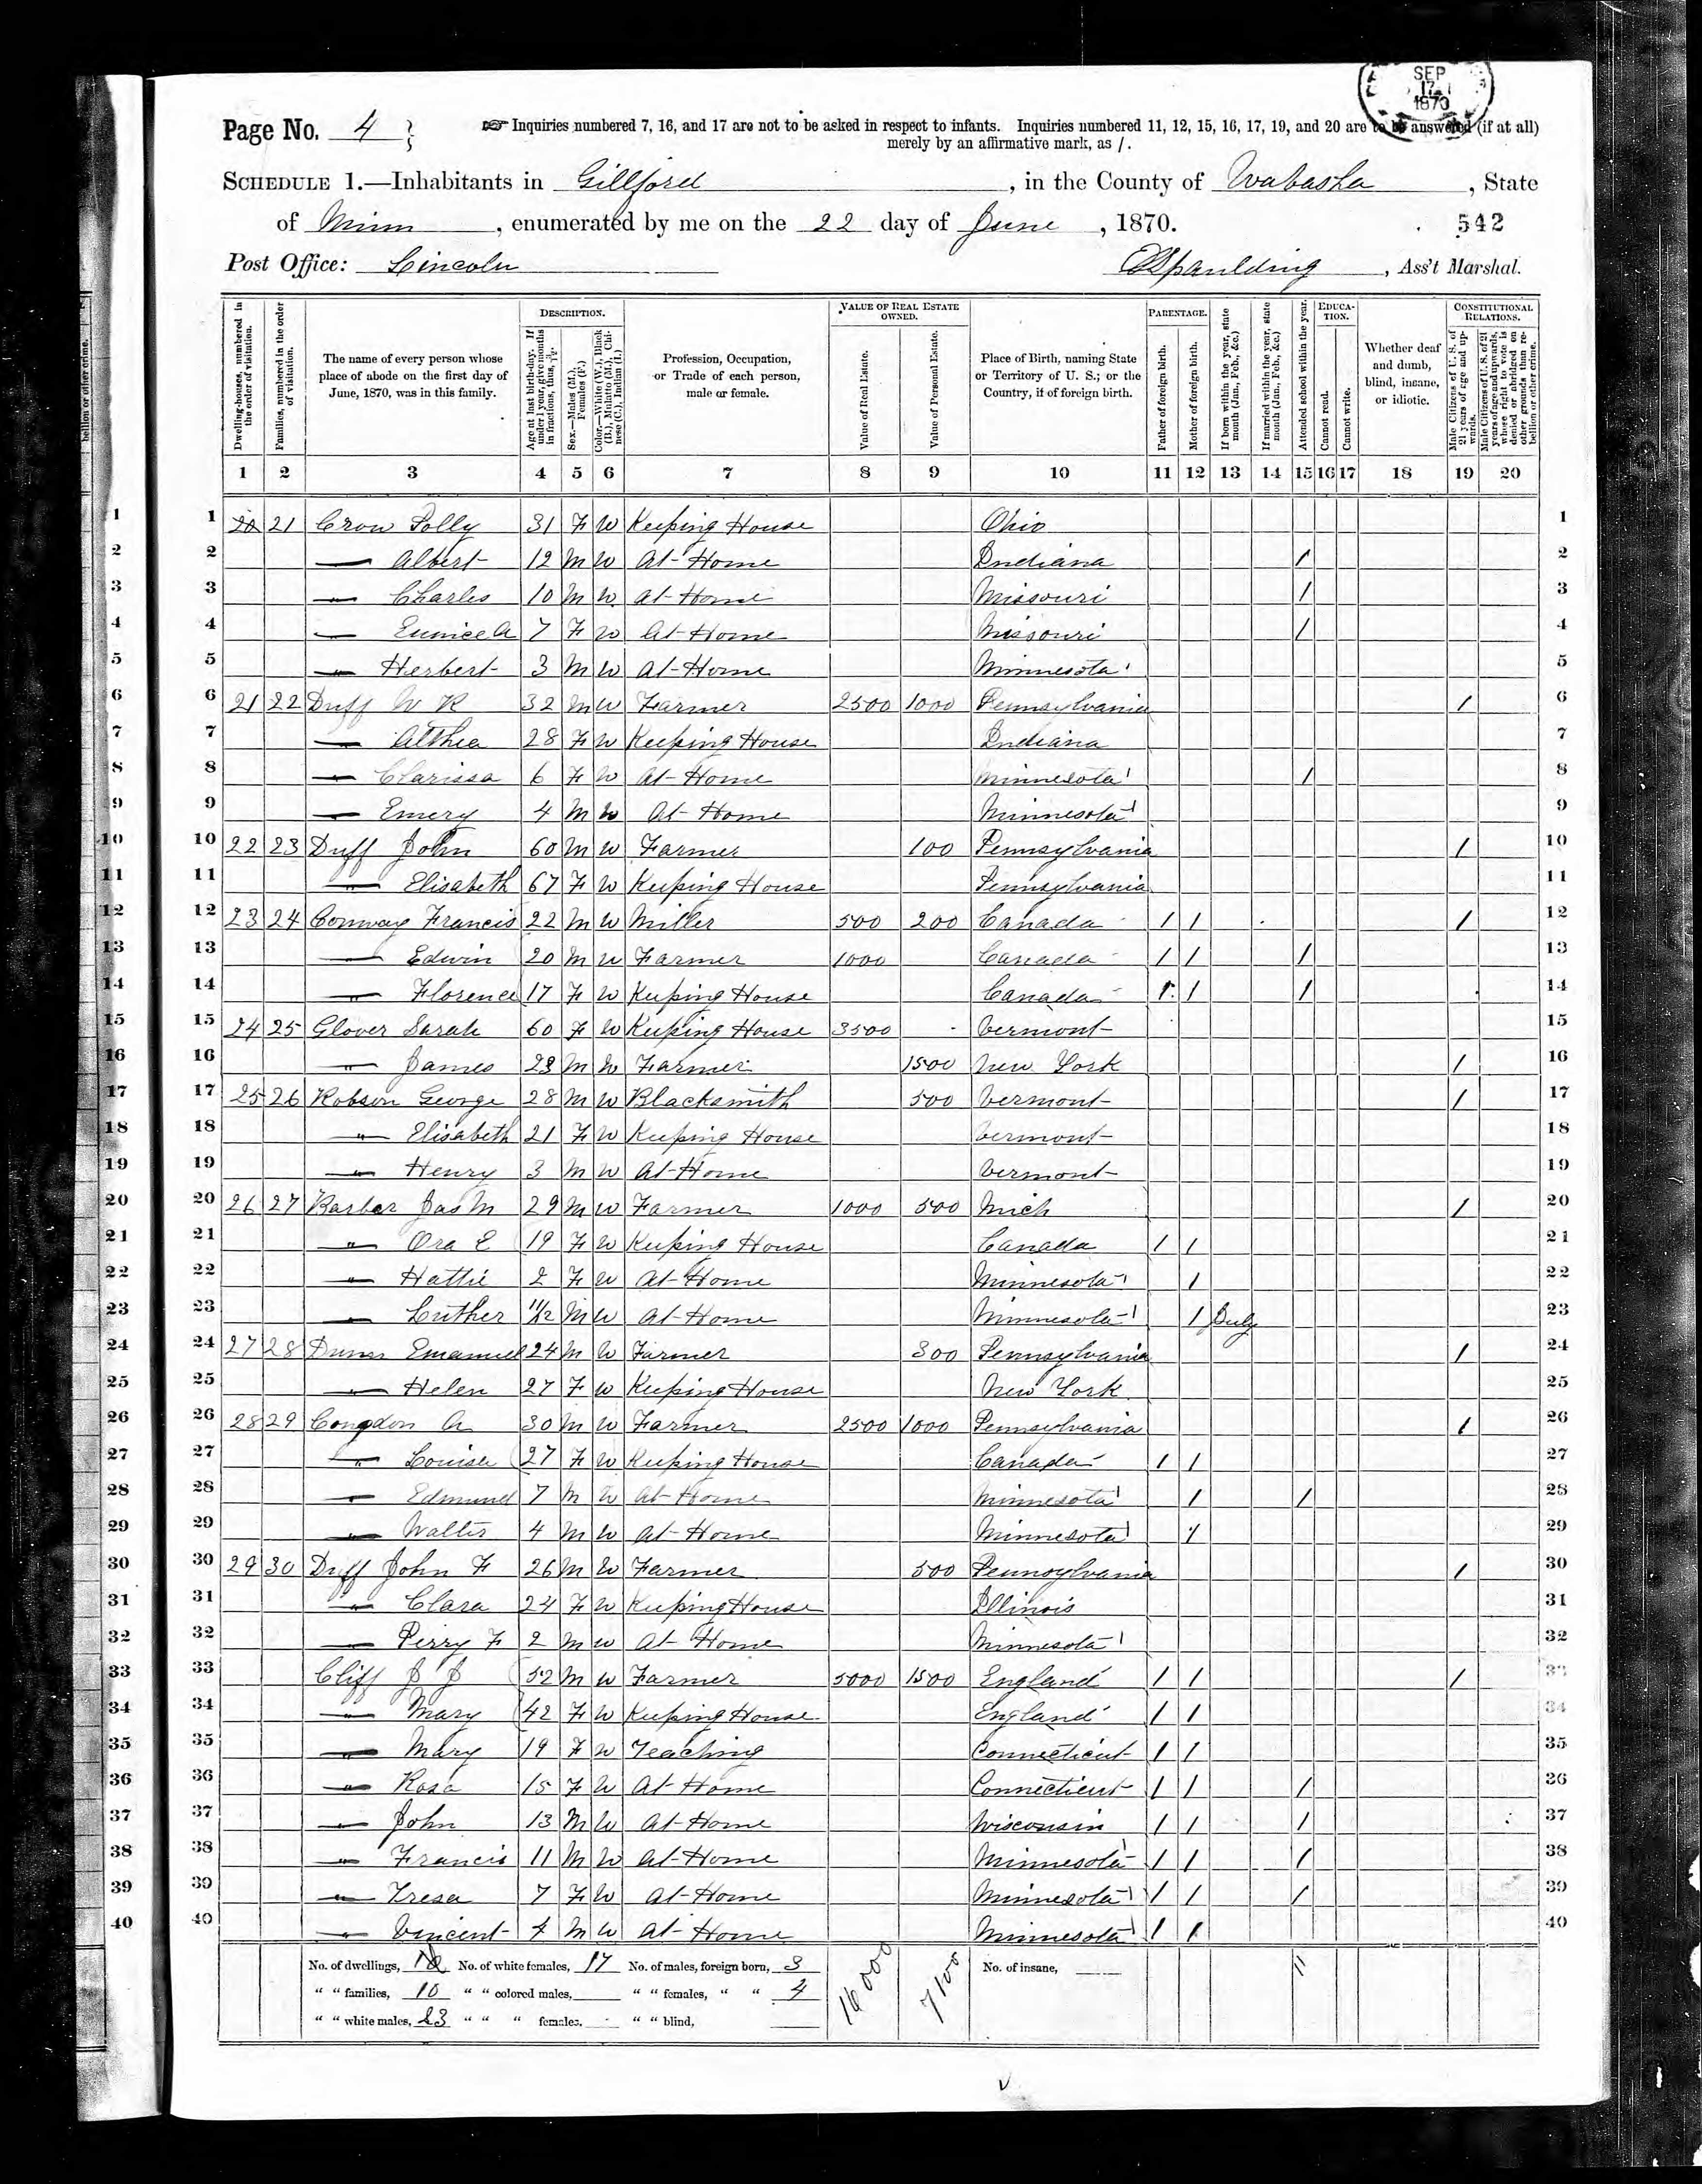 SEP 17 1870
Page No. 4
Inquiries numbered 7, 16, and 17 are not to be asked in respect to infants. Inquiries numbered 11, 12, 15, 16, 17, 19, and 20 are to be answered (if at all)
merely by an affirmative mark, as /.
SCHEDULE 1.—Inhabitants in Gillford, in the County of Wabasha, State
of Minn, enumerated by me on the 22 day of June, 1870. 542
Post Office: Lincoln Spaulding, Ass't Marshal.
Dwelling-houses, numbered in the order of visitation.
Families, numbered in the order of visitation.
The name of every person whose place of abode on the first day of June, 1870, was in this family.
DESCRIPTION.
Age at last birth-day. If under 1 year, give months in fractions, thus, 3/12.
Sex.—Males (M.), Females (F.)
Color.—White (W.), Black (B.), Mulatto (M.), Chinese (C.), Indian (I.)
Profession, Occupation, or Trade of each person, male or female.
VALUE OF REAL ESTATE OWNED.
Value of Real Estate.
Value of Personal Estate.
Place of Birth, naming State or Territory of U. S.; or the Country, if of foreign birth.
PARENTAGE.
Father of foreign birth.
Mother of foreign birth.
If born within the year, state month (Jan., Feb., &c.)
If married within the year, state month (Jan., Feb., &c.)
Attended school within the year.
EDUCATION.
Cannot read.
Cannot write.
Whether deaf and dumb, blind, insane, or idiotic.
CONSTITUTIONAL RELATIONS.
Male Citizens of U. S. of 21 years of age and upwards.
Male Citizens of U. S. of 21 years of age and upwards, whose right to vote is denied or abridged on other grounds than rebellion or other crime.
1 2 3 4 5 6 7 8 9 10 11 12 13 14 15 16 17 18 19 20
1 20 21 Crow Polly 31 F W Keeping House Ohio 1
2 — Albert 12 M W At Home Indiana / 2
3 — Charles 10 M W At Home Missouri / 3
4 — Eunice A 7 F W At Home Missouri / 4
5 — Herbert 3 M W At Home Minnesota 5
6 21 22 Duff W R 32 M W Farmer 2500 1000 Pennsylvania / 6
7 — Althea 28 F W Keeping House Indiana 7
8 — Clarissa 6 F W At Home Minnesota / 8
9 — Emery 4 M W At Home Minnesota 9
10 22 23 Duff John 60 M W Farmer 100 Pennsylvania / 10
11 — Elisabeth 67 F W Keeping House Pennsylvania 11
12 23 24 Conway Francis 22 M W Miller 500 200 Canada / / / 12
13 — Edwin 20 M W Farmer 1000 Canada / / / 13
14 — Florence 17 F W Keeping House Canada / / / 14
15 24 25 Glover Sarah 60 F W Keeping House 3500 Vermont 15
16 — James 23 M W Farmer 1500 New York / 16
17 25 26 Robson George 28 M W Blacksmith 500 Vermont / 17
18 — Elisabeth 21 F W Keeping House Vermont 18
19 — Henry 3 M W At Home Vermont 19
20 26 27 Barber Jas M 29 M W Farmer 1000 500 Mich / 20
21 — Ora E 19 F W Keeping House Canada / / 21
22 — Hattie 2 F W At Home Minnesota / 22
23 — Luther 11/12 M W At Home Minnesota / July 23
24 27 28 Emanuel 24 M W Farmer 300 Pennsylvania / 24
25 — Helen 27 F W Keeping House New York 25
26 28 29 Congdon A 30 M W Farmer 2500 1000 Pennsylvania / 26
27 — Louisa 27 F W Keeping House Canada / / 27
28 — Edmund 7 M W At Home Minnesota / / 28
29 — Walter 4 M W At Home Minnesota / 29
30 29 30 Duff John F 26 M W Farmer 500 Pennsylvania / 30
31 — Clara 24 F W Keeping House Illinois 31
32 — Perry F 2 M W At Home Minnesota 32
33 Cliff J J 52 M W Farmer 5000 1500 England / / / 33
34 — Mary 42 F W Keeping House England / / 34
35 — Mary 19 F W Teaching Connecticut / / 35
36 — Rosa 15 F W At Home Connecticut / / / 36
37 — John 13 M W At Home Wisconsin / / / 37
38 — Francis 11 M W At Home Minnesota / / / 38
39 — Tresa 7 F W At Home Minnesota / / / 39
40 — Vincent 4 M W At Home Minnesota / / 40
No. of dwellings, No. of white females, 17 No. of males, foreign born, 3 16000 7100 No. of insane, 11
" " families, 10 " " colored males, " " females, " " 4
" " white males, 23 " " " females, " " blind,